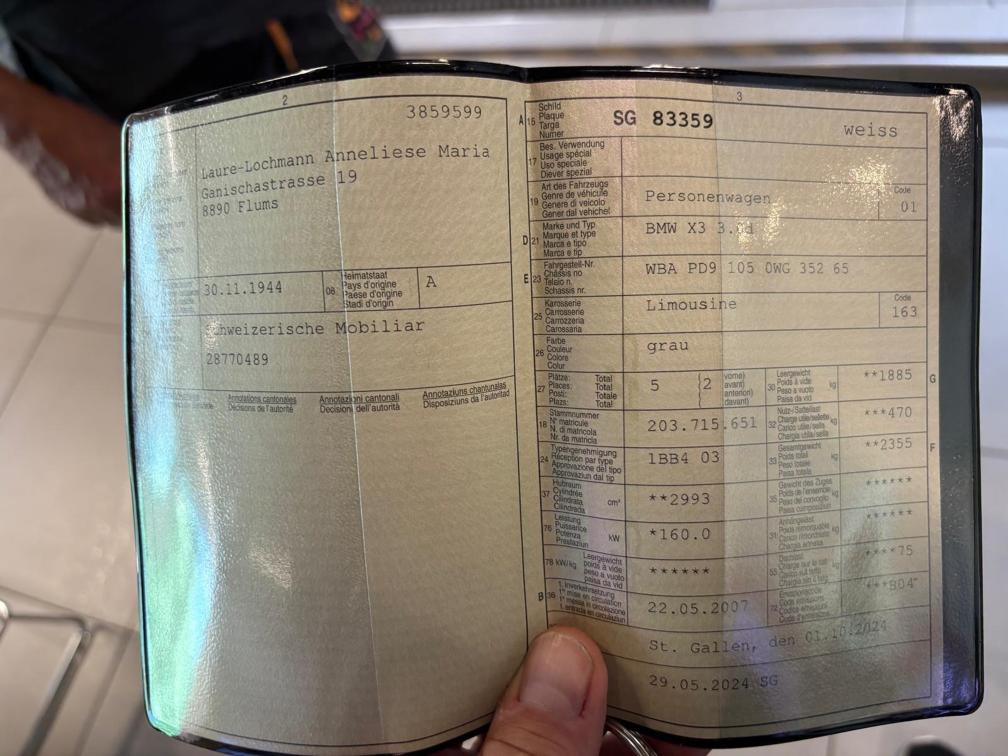 2
3859599
Laure-Lochmann Anneliese Maria
Ganischastrasse 19
8890 Flums
30.11.1944
08
Heimatstaat
Pays d'origine
Paese d'origine
Stadi d'origin
A
Schweizerische Mobiliar
28770489
Annotations cantonales
Décisions de l'autorité
Annotazioni cantonali
Decisioni dell'autorità
Annotaziuns chantunalas
Disposiziuns da l'autoritad
3
A 15
Schild
Plaque
Targa
Numer
SG 83359
weiss
17
Bes. Verwendung
Usage spécial
Uso speciale
Diever spezial
19
Art des Fahrzeugs
Genre de véhicule
Genere di veicolo
Gener dal vehichel
Personenwagen
Code
01
D 21
Marke und Typ
Marque et type
Marca e tipo
Marca e tip
BMW X3 3.0d
E 23
Fahrgestell-Nr.
Châssis no
Telaio n.
Schassis nr.
WBA PD9 105 0WG 352 65
25
Karosserie
Carrosserie
Carrozzeria
Carossaria
Limousine
Code
163
26
Farbe
Couleur
Colore
Colur
grau
27
Plätze: Total
Places: Total
Posti: Totale
Plazs: Total
5
2
vorne)
avant)
anteriori)
davant)
30
Leergewicht
Poids à vide
Peso a vuoto
Paisa da vid
kg
**1885
G
18
Stammnummer
N° matricule
N. di matricola
Nr. da matricla
203.715.651
32
Nutz-/Sattellast
Charge utile/sellette
Carico utile/sella
Chargia utila/sella
kg
***470
24
Typengenehmigung
Réception par type
Approvazione del tipo
Approvaziun dal tip
1BB4 03
33
Gesamtgewicht
Poids total
Peso totale
Paisa totala
kg
**2355
F
37
Hubraum
Cylindrée
Cilindrata
Cilindrada
cm³
**2993
35
Gewicht des Zuges
Poids de l'ensemble
Peso del convoglio
Paisa cumposiziun
kg
******
76
Leistung
Puissance
Potenza
Prestaziun
kW
*160.0
31
Anhängelast
Poids remorquable
kg
******
78 kW/kg
Leergewicht
poids à vide
peso a vuoto
paisa da vid
******
55
Dachlast
kg
****75
B 36
1. Inverkehrsetzung
1re mise en circulation
1a messa in circolazione
1. entrada en circulaziun
22.05.2007
72
Emissionscode
Code émissions
***B04
St. Gallen, den 01.10.2024
29.05.2024 SG